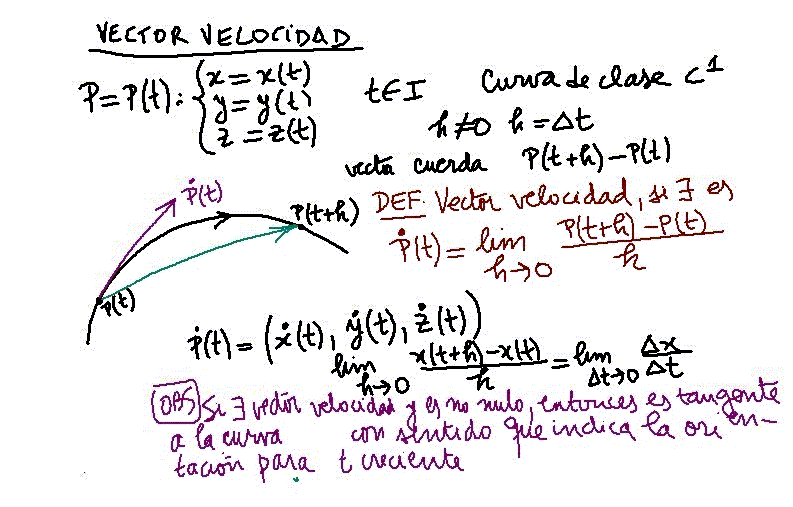 VECTOR VELOCIDAD
P=P(t): { x = x(t) t∈I Curva de clase C¹
y = y(t) h≠0 h = Δt
z = z(t)
vector cuerda P(t+h)-P(t)
Ṗ(t) P(t+h) P(t)
DEF. Vector velocidad, si ∃ es
Ṗ(t) = lim h→0 P(t+h)-P(t) / h
Ṗ(t) = (ẋ(t), ẏ(t), ż(t))
lim h→0 x(t+h)-x(t) / h = lim Δt→0 Δx / Δt
OBS Si ∃ vector velocidad y es no nulo, entonces es tangente
a la curva con sentido que indica la orien-
tación para t creciente